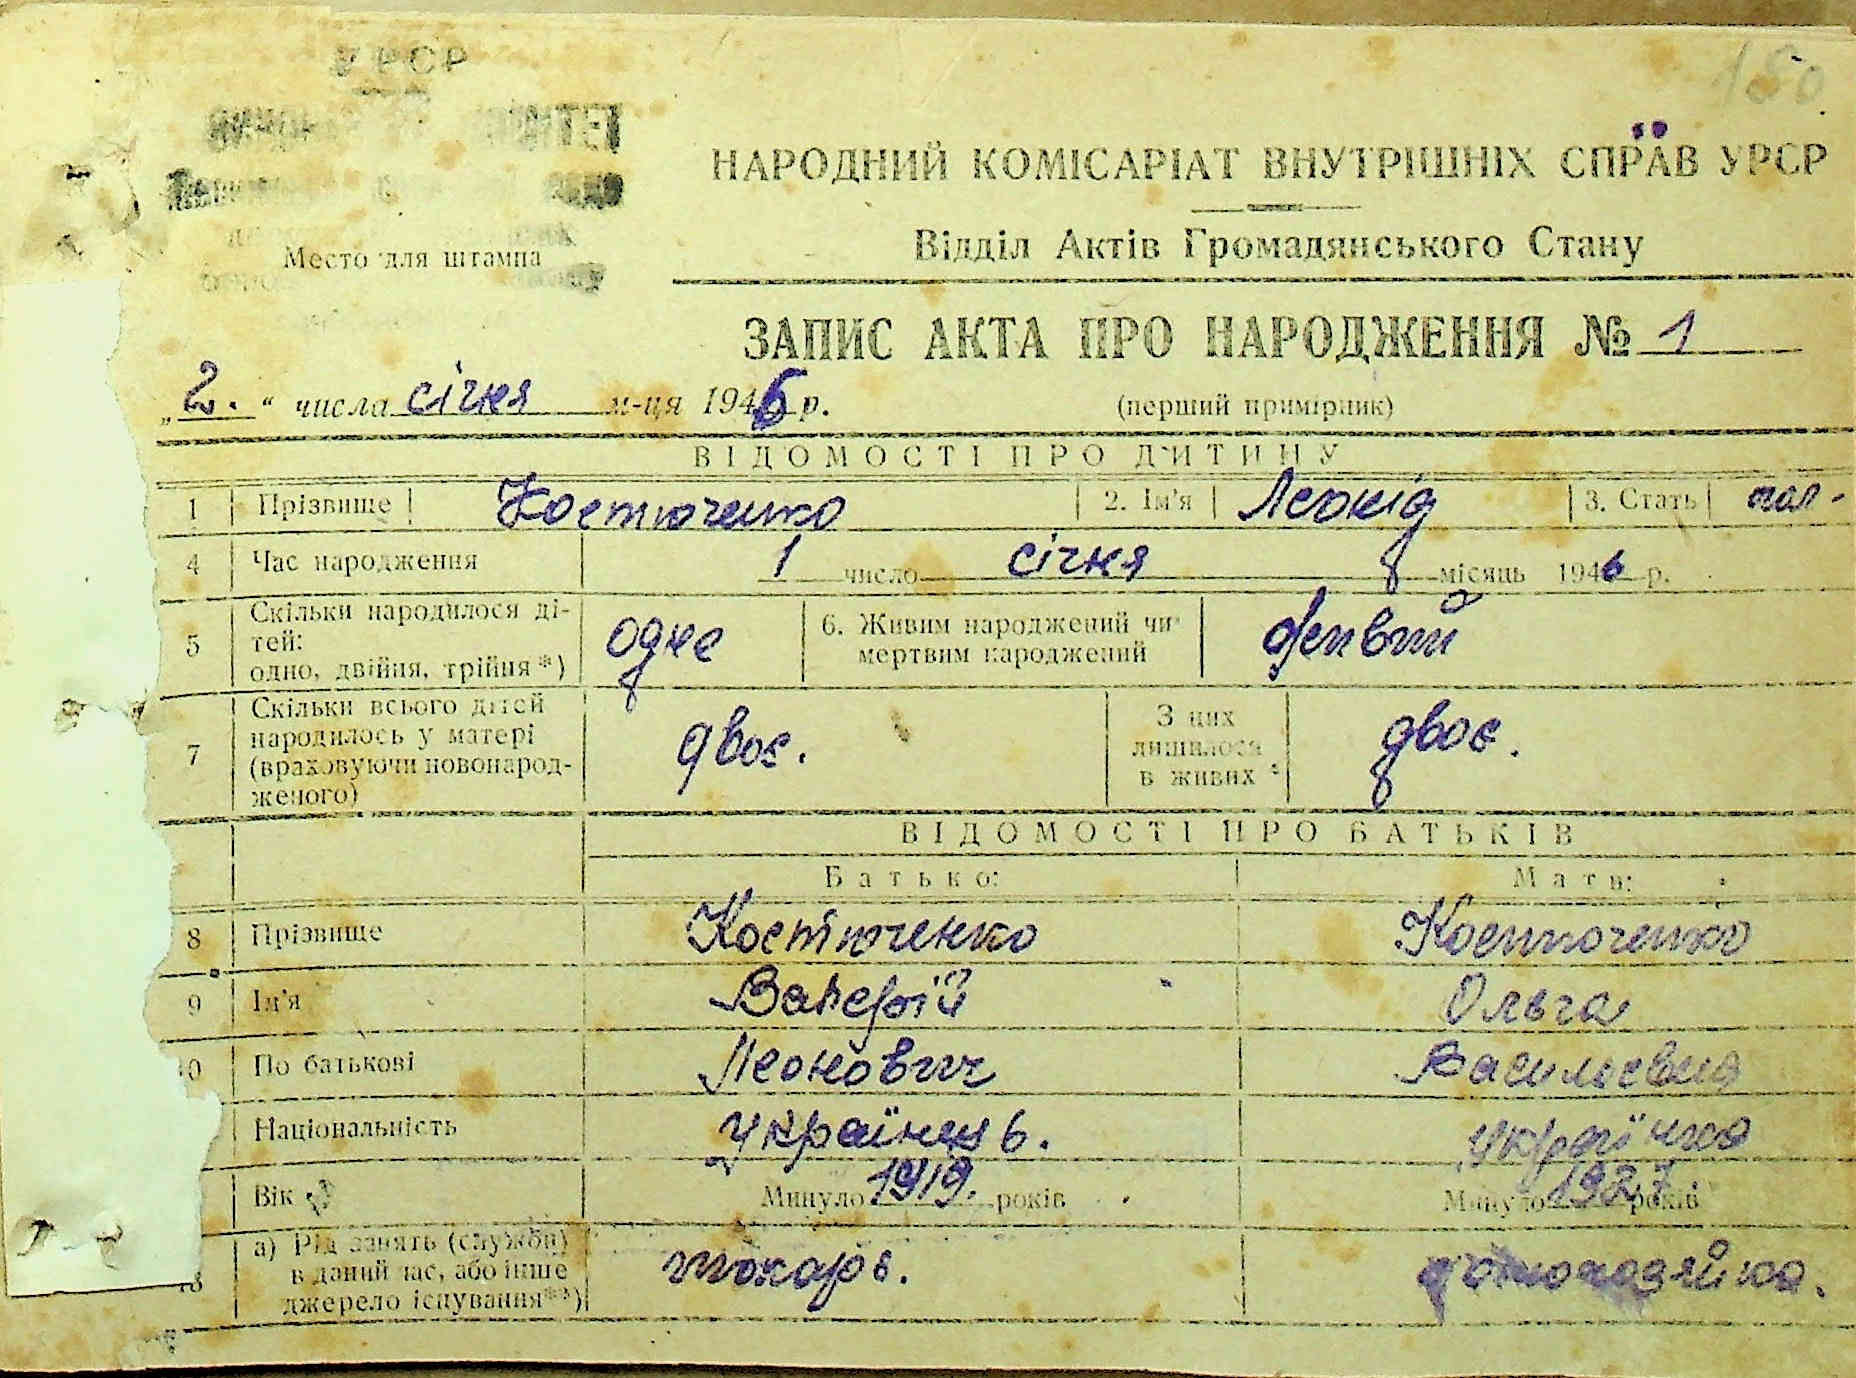 УРСР
180
НАРОДНИЙ КОМІСАРІАТ ВНУТРІШНІХ СПРАВ УРСР
Відділ Актів Громадянського Стану
Место для штампа
ЗАПИС АКТА ПРО НАРОДЖЕННЯ № 1
„2." числа січня м-ця 1946 р.
(перший примірник)
ВІДОМОСТІ ПРО ДИТИНУ
1 Прізвище Костюченко 2. Ім'я Леонід 3. Стать чол-
4 Час народження 1 число січня місяць 1946 р.
5 Скільки народилося ді-
тей:
одно, двійня, трійня*) одне 6. Живим народжений чи
мертвим народжений живий
7 Скільки всього дітей
народилось у матері
(враховуючи новонарод-
женого) двоє. З них
лишилося
в живих двоє.
ВІДОМОСТІ ПРО БАТЬКІВ
Батько: Мати:
8 Прізвище Костюченко Костюченко
9 Ім'я Валерій Ольга
10 По батькові Леонович Васильевна
Національність українець. українка
Вік Минуло 1919. років Минуло 1927. років
а) Рід занять (служби)
в даний час, або інше
джерело існування**) токарь. домохазяйка.